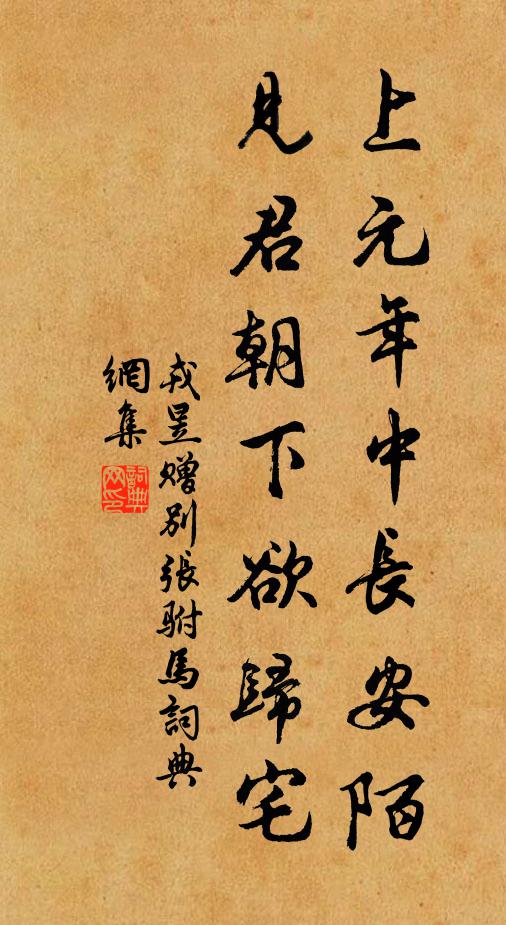 上元年中長安陌
見君朝下欲歸宅
戎昱贈別張駙馬詞典
網集
詞典
网印